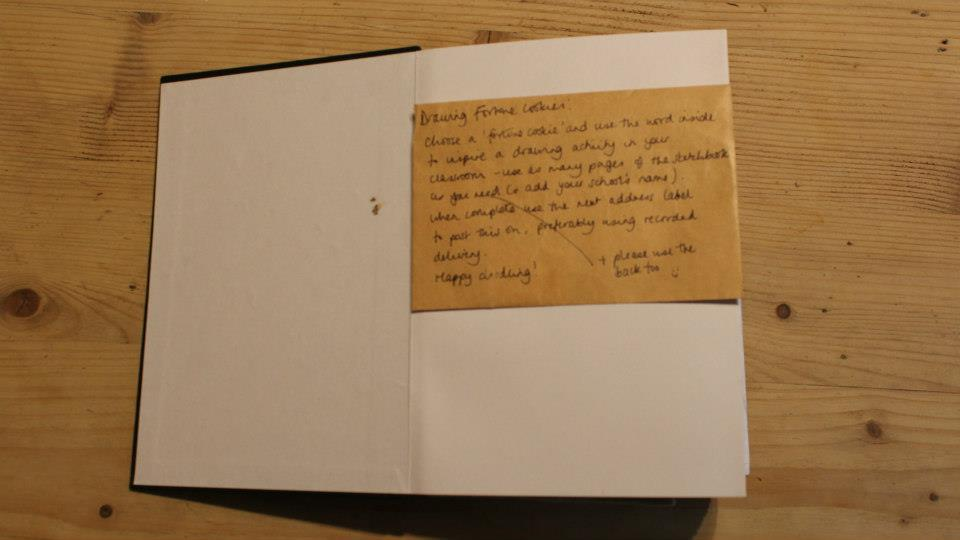 Drawing Fortune Cookies:
Choose a 'fortune cookie' and use the word inside
to inspire a drawing activity in your
classroom - use as many pages of the sketchbook
as you need (o add your school's name).
When complete use the next address label
to post this on, preferably using recorded
delivery.
Happy doodling!
+ please use the
back too